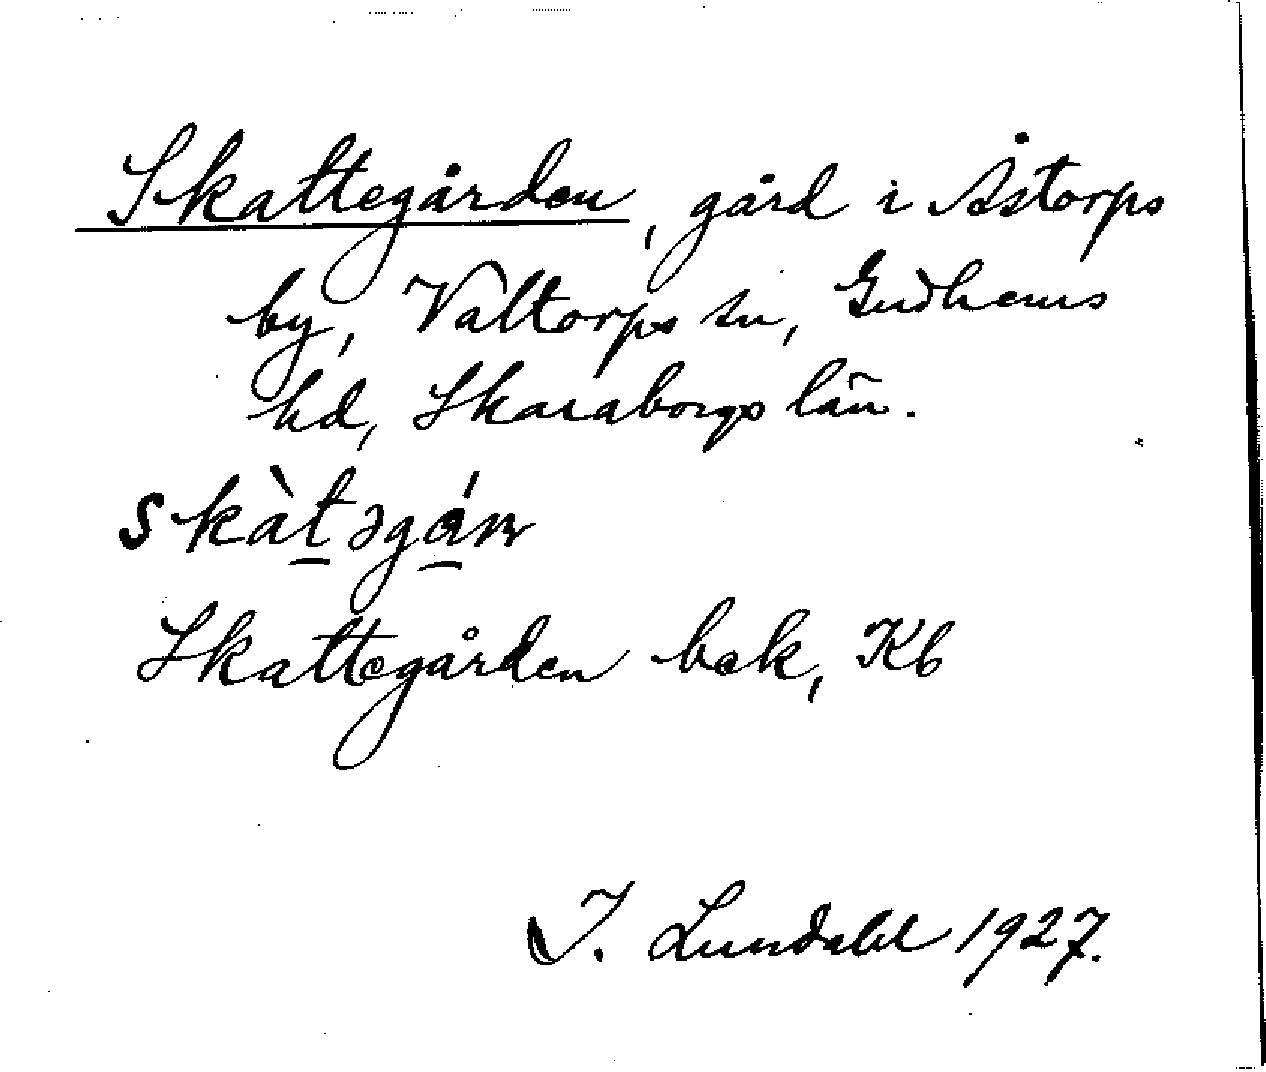 Skattegården, gård i Åstorps
by, Valtorps sn, Gudhems
hd, Skaraborgs län.
skàt̠əgá̠ɳ
Skattegården bek, Kb
I. Lundahl 1927.